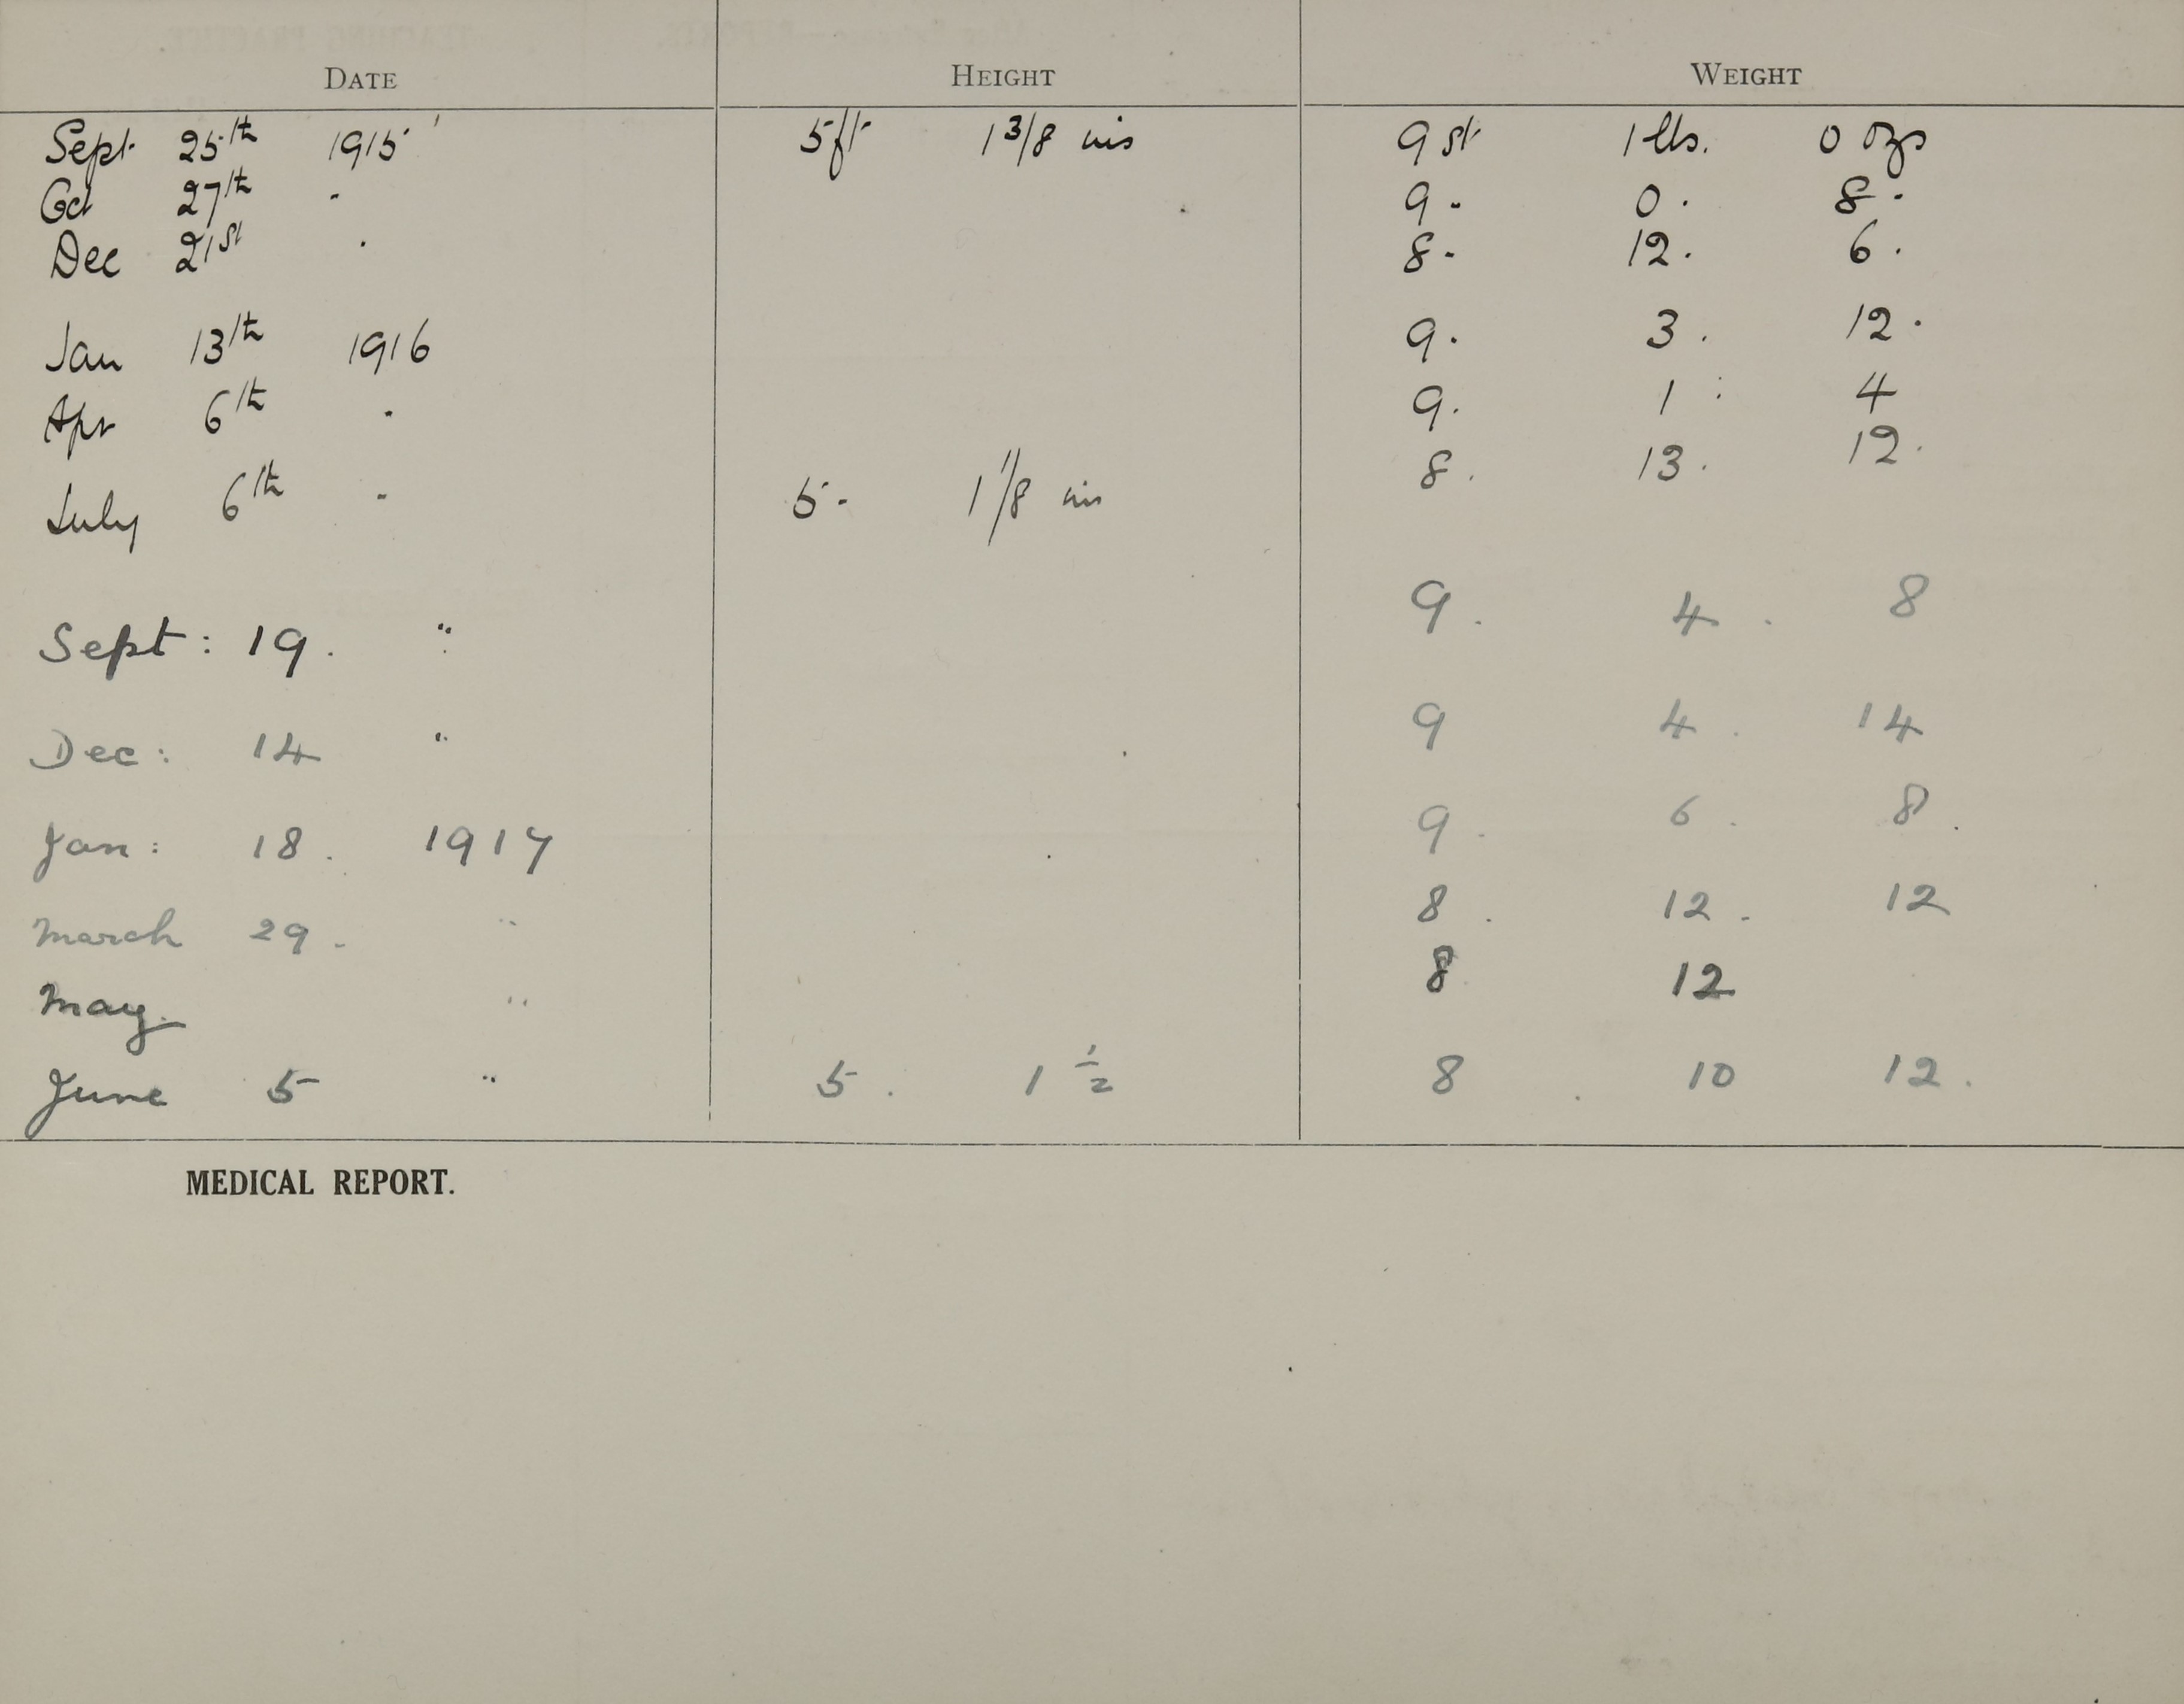 DATE HEIGHT WEIGHT
Sept 25th 1915 5ft 1 3/8 ins 9 st 1 lbs. 0 ozs
Oct 27th " 9 " 0 . 8 "
Dec 21st " 8 " 12 . 6 .
Jan 13th 1916 9 . 3 . 12 .
Apr 6th " 9 . 1 : 4
July 6th " 5 " 1 1/8 in 8 . 13 . 12 .
Sept : 19 . " 9 . 4 . 8
Dec : 14 " 9 4 . 14
Jan : 18 . 1917 9 . 6 . 8 .
March 29 . " 8 . 12 . 12
May . " 8 12
June 5 " 5 . 1 1/2 8 . 10 12 .
MEDICAL REPORT.